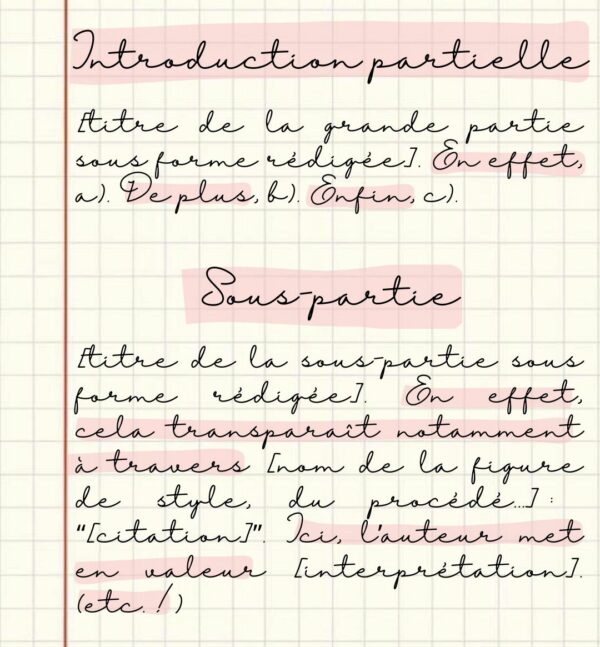 Introduction partielle
[titre de la grande partie
sous forme rédigée]. En effet,
a). De plus, b). Enfin, c).
Sous-partie
[titre de la sous-partie sous
forme rédigée]. En effet,
cela transparaît notamment
à travers [nom de la figure
de style, du procédé...] :
"[citation]". Ici, l'auteur met
en valeur [interprétation].
(etc. !)